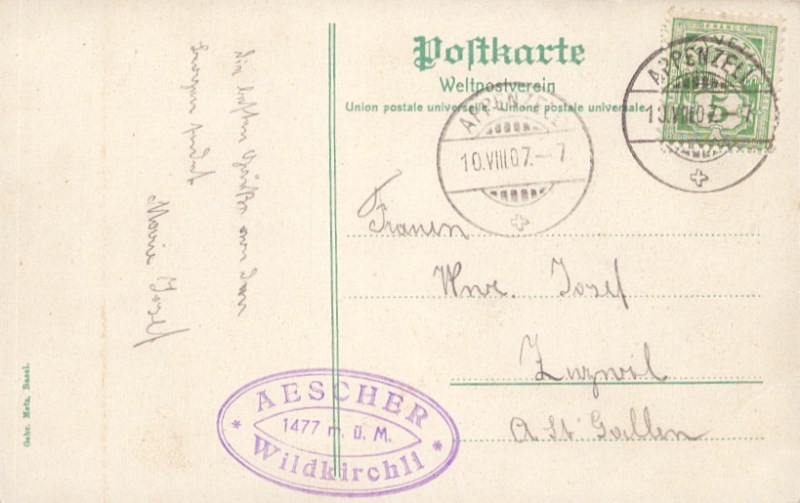 Postkarte
Weltpostverein
Union postale universelle. Unione postale universale
FRANCO
5
APPENZELL
10.VIII.07.–7
APPENZELL
10.VIII.07.–7
Frauen
Wwe. Josef
Zuzwil
St Gallen
die besten Grüße
Marie
AESCHER
1477 m. ü. M.
Wildkirchli
Gebr. Metz, Basel.